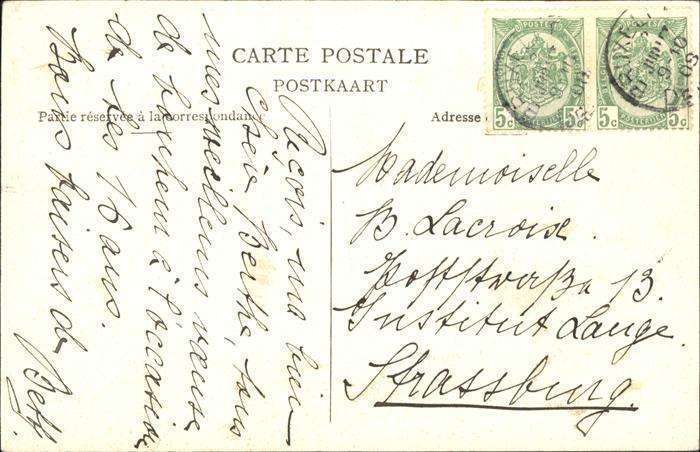 CARTE POSTALE
POSTKAART
Partie réservée à la correspondance
Adresse
POSTES
POSTES
5c 5c
5c 5c
Reçois, ma bien
chère Berthe, tous
mes meilleurs vœux
de bonheur à l'occasion
de tes 16 ans.
Bons baisers de
Jeff.
Mademoiselle
B. Lacroix.
13.
Institut Lange.
Strassburg.